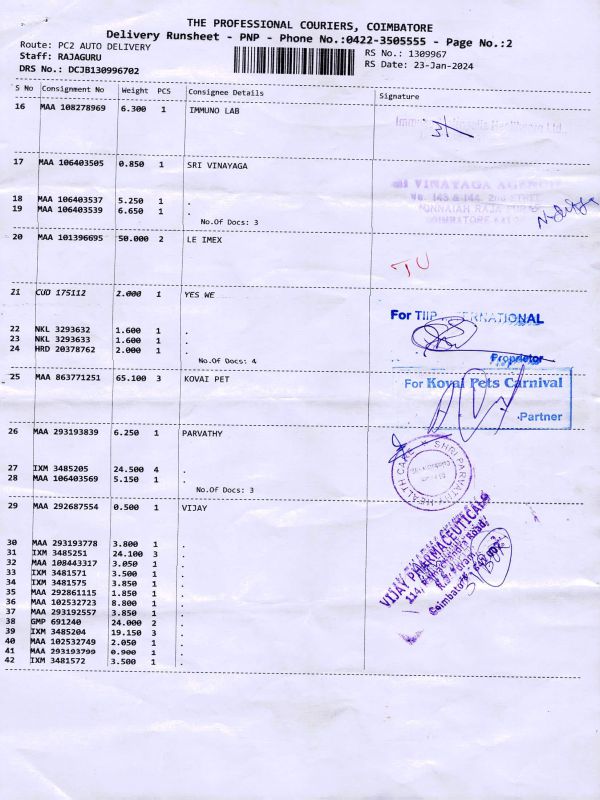 THE PROFESSIONAL COURIERS, COIMBATORE
Delivery Runsheet - PNP - Phone No.:0422-3505555 - Page No.:2
Route: PC2 AUTO DELIVERY RS No.: 1309967
Staff: RAJAGURU RS Date: 23-Jan-2024
DRS No.: DCJB130996702
S No Consignment No Weight PCS Consignee Details Signature
16 MAA 108278969 6.300 1 IMMUNO LAB
17 MAA 106403505 0.850 1 SRI VINAYAGA
VINAYAGA AGENCIE
18 MAA 106403537 5.250 1 .
19 MAA 106403539 6.650 1 .
No.Of Docs: 3
20 MAA 101396695 50.000 2 LE IMEX
TU
21 CUD 175112 2.000 1 YES WE
For TIIP ERNATIONAL
22 NKL 3293632 1.600 1 .
23 NKL 3293633 1.600 1 .
24 HRD 20378762 2.000 1 .
No.Of Docs: 4
Proprietor
25 MAA 863771251 65.100 3 KOVAI PET
For Kovai Pets Carnival
Partner
26 MAA 293193839 6.250 1 PARVATHY
SHRI PARVATHY HEALTH CARE
27 IXM 3485205 24.500 4 .
28 MAA 106403569 5.150 1 .
No.Of Docs: 3
29 MAA 292687554 0.500 1 VIJAY
VIJAY PHARMACEUTICALS
Coimbatore
30 MAA 293193778 3.800 1 .
31 IXM 3485251 24.100 3 .
32 MAA 108443317 3.050 1 .
33 IXM 3481571 3.500 1 .
34 IXM 3481575 3.850 1 .
35 MAA 292861115 1.850 1 .
36 MAA 102532723 8.800 1 .
37 MAA 293192557 3.850 1 .
38 GMP 691240 24.000 2 .
39 IXM 3485204 19.150 3 .
40 MAA 102532749 2.050 1 .
41 MAA 293193799 0.900 1 .
42 IXM 3481572 3.500 1 .